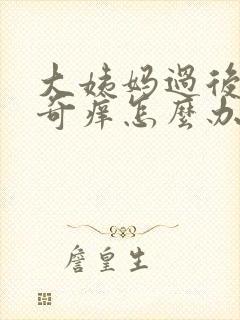 大姨妈過後
奇痒怎麽办
詹皇生